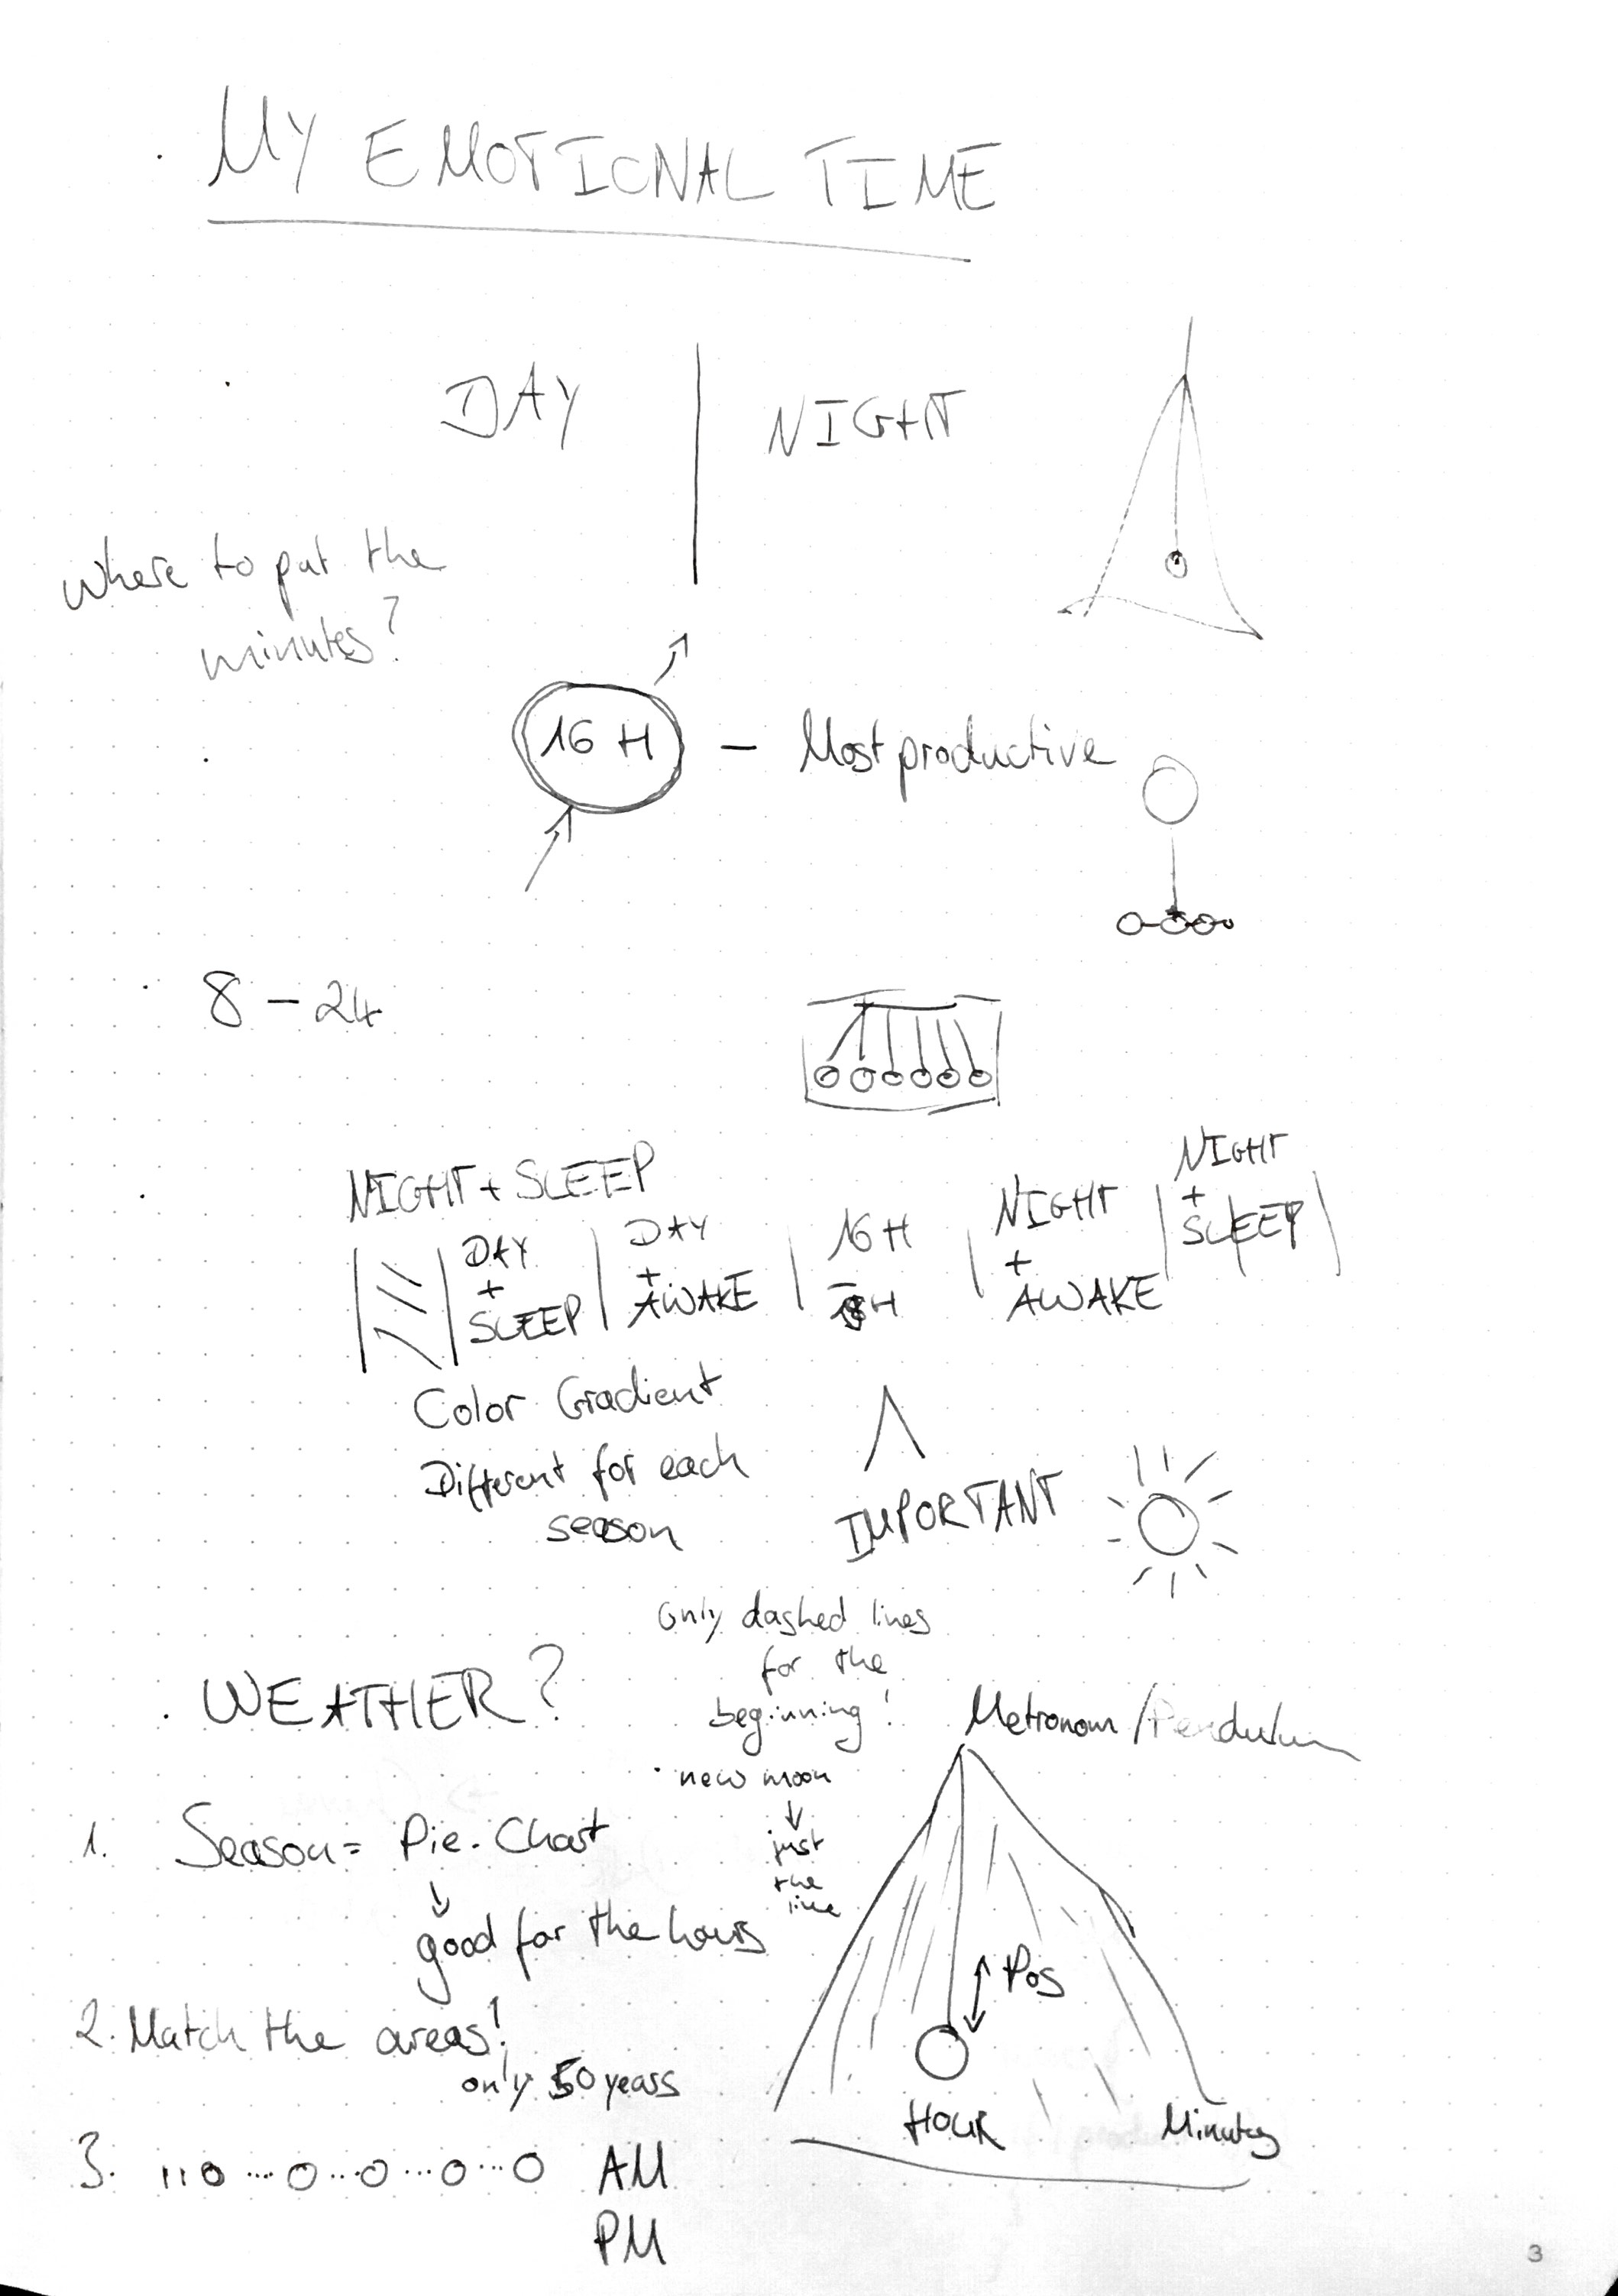 MY EMOTIONAL TIME
DAY | NIGHT
Where to put the
minutes?
16 H - Most productive
8 - 24
NIGHT + SLEEP
DAY
+
SLEEP
DAY
+
AWAKE
16 H
-
18 H
NIGHT
+
AWAKE
NIGHT
+
SLEEP
Color Gradient
Different for each
season
IMPORTANT
WEATHER?
only dashed lines
for the
beginning!
new moon
just
the
line
Metronom / Pendulum
1. Season = Pie-Chart
good for the hours
2. Match the areas!
only 50 years
Pos
HOUR
Minutes
3. AM
PM
3